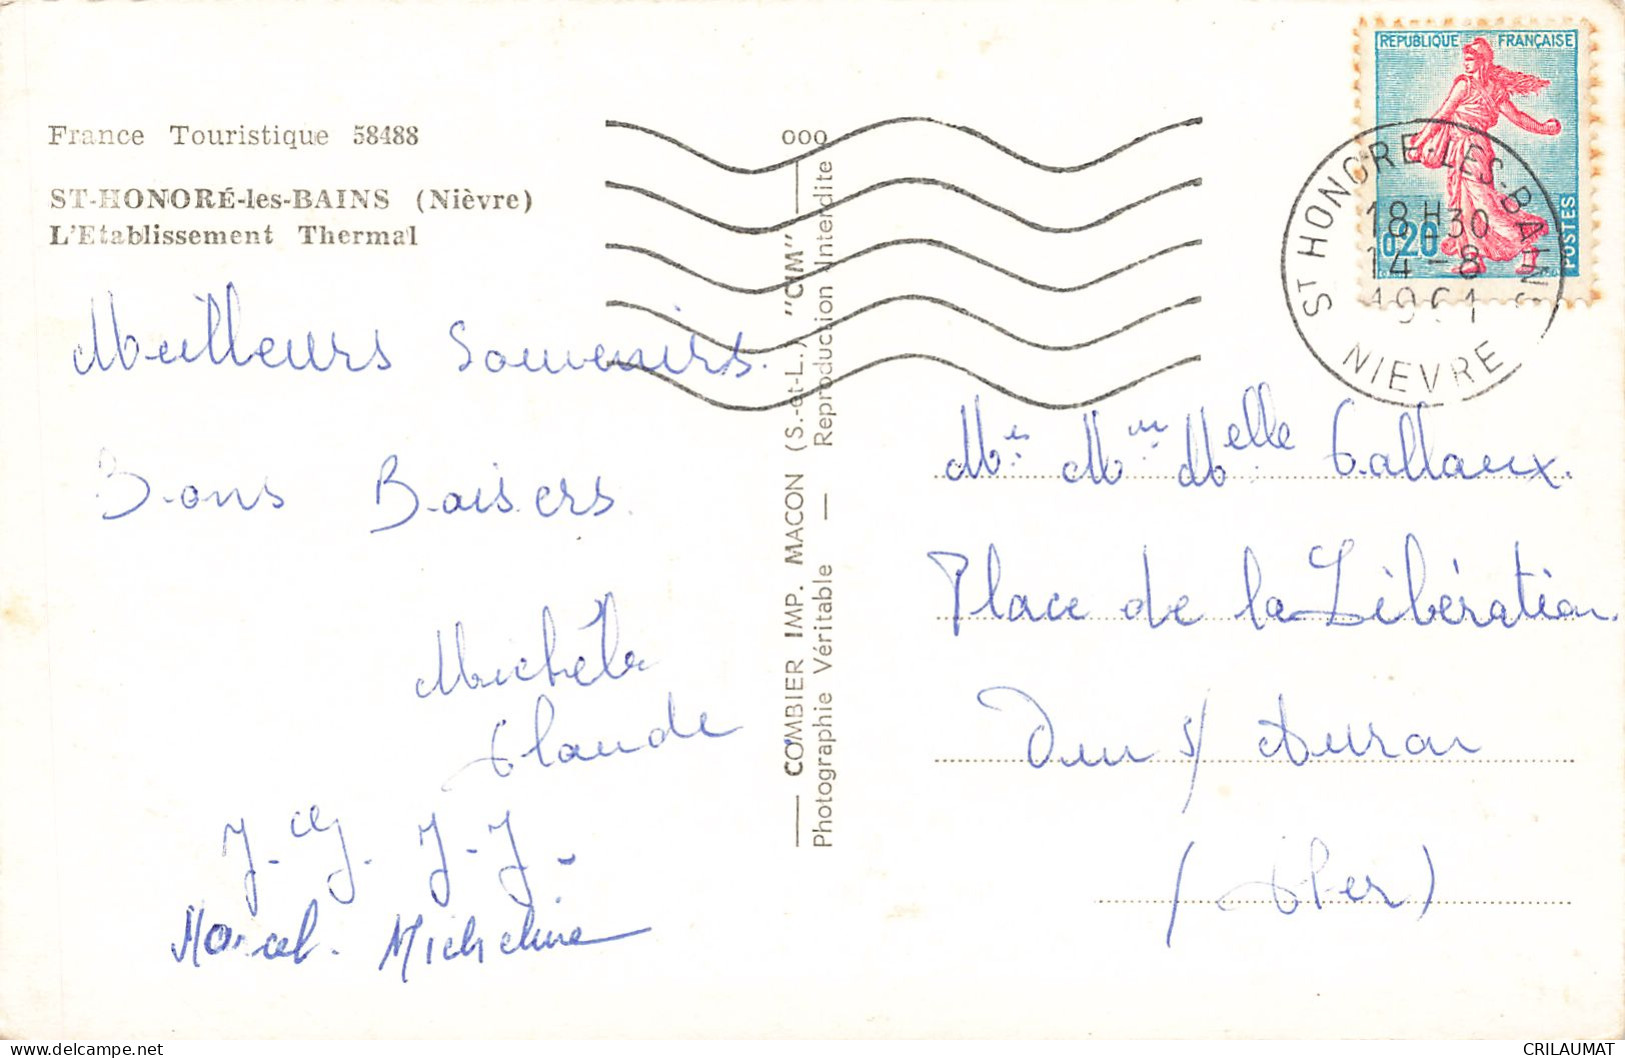 France Touristique 58488
ST-HONORÉ-les-BAINS (Nièvre)
L'Etablissement Thermal
Meilleurs Souvenirs.
Bons Baisers
Michèle
Claude
J. J.
Marcel. Micheline
COMBIER IMP. MACON (S.-et-L.) "CIM"
Photographie Véritable — Reproduction Interdite
REPUBLIQUE FRANÇAISE
0,20
POSTES
ST HONORE-LES-BAINS
18H30
14-8
1961
NIEVRE
Mr Mme Melle Tallaux.
Place de la Libération
Dun s/ Auron
(Cher)
www.delcampe.net
CRILAUMAT